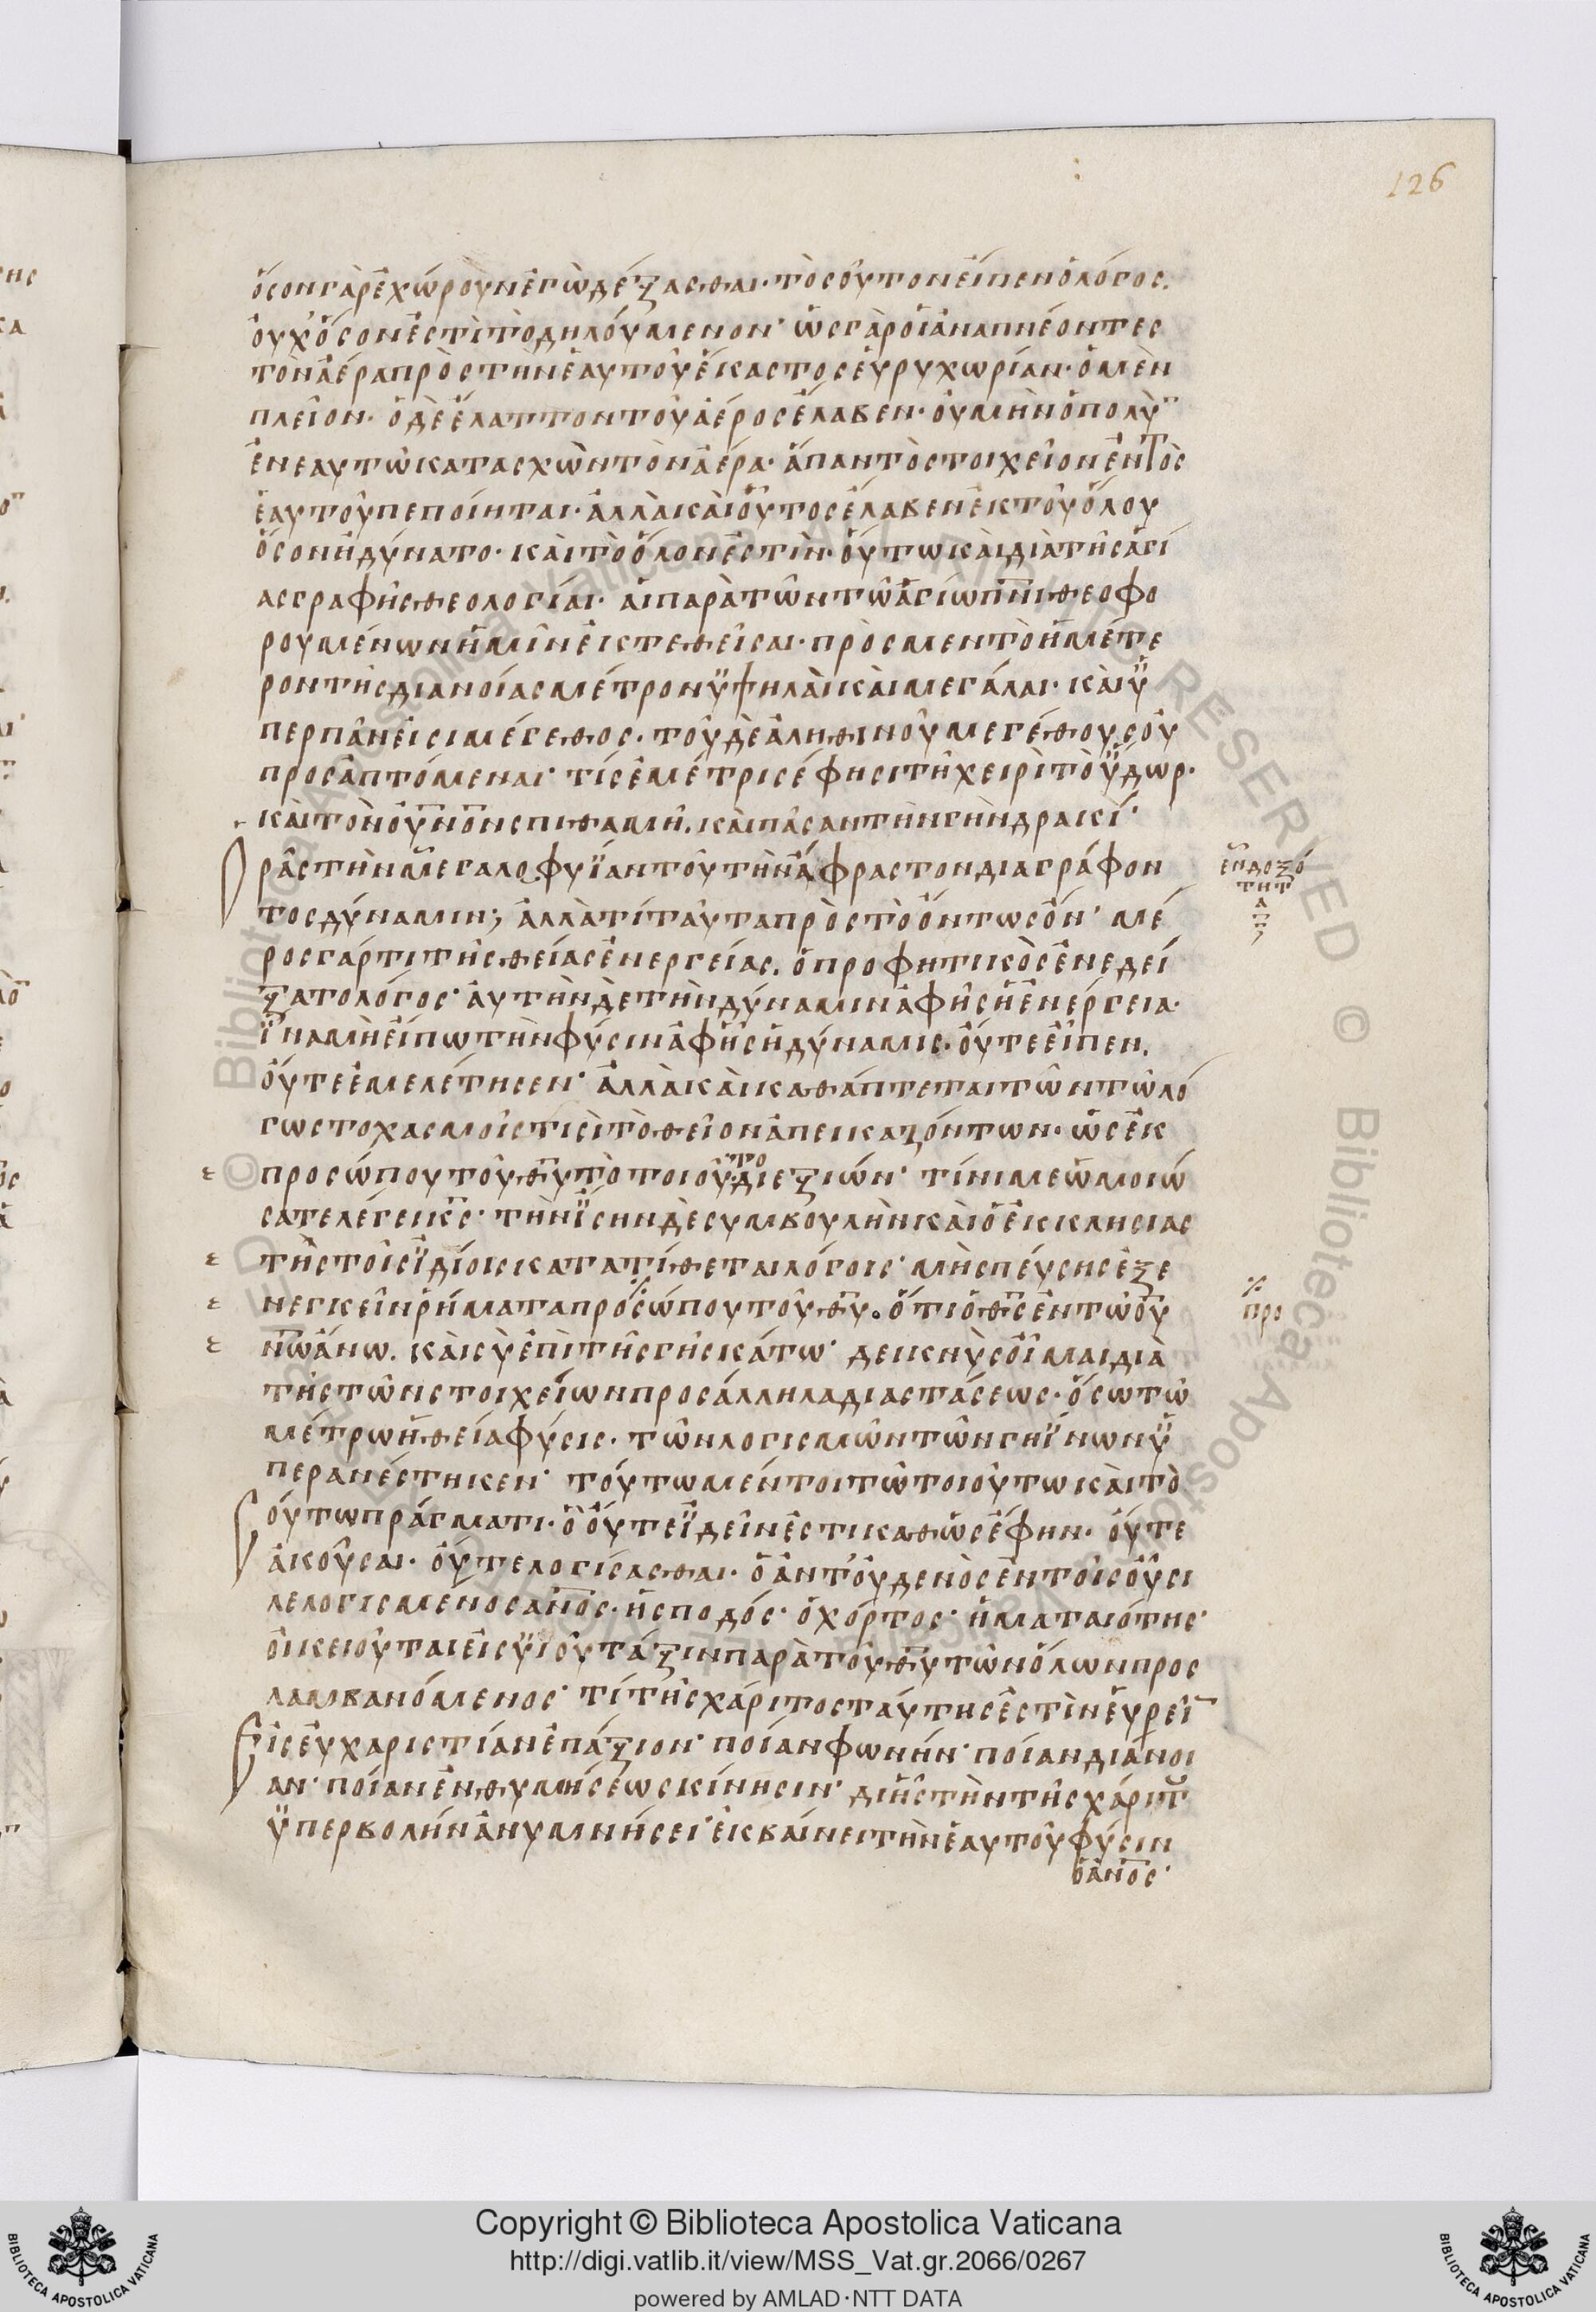 126
ὅσον γὰρ ἐχώρουν ἐγὼ δέξασθαι· τοσοῦτον εἶπεν ὁ λόγος.
οὐχ' ὅσον ἐστὶ τὸ δηλούμενον· ὡς γὰρ οἱ ἀναπνέοντες
τὸν ἀέρα πρὸς τὴν ἑαυτοῦ ἕκαστος εὐρυχωρίαν· ὁ μὲν
πλεῖον· ὁ δὲ ἔλαττον τοῦ ἀέρος ἔλαβεν· οὐ μὴν ὁ πολὺ
ἐν ἑαυτῶ κατασχὼν τὸν ἀέρα· ἅπαν τὸ στοιχεῖον ἐντὸς
ἑαυτοῦ πεποίηται· ἀλλὰ καὶ οὗτος ἔλαβεν ἐκ τοῦ ὅλου
ὅσον ἠδύνατο· καὶ τὸ ὅλον ἐστὶν· οὕτω καὶ διὰ τῆς ἁγί
ας γραφῆς θεολογίαι· αἱ παρὰ τῶν τῶ ἁγίω πνι θεοφο
ρουμένων ἡμῖν ἐκτεθεῖσαι· πρὸς μεν τὸ ἡμέτε
ρον τῆς διανοίας μέτρον ὑψηλαὶ καὶ μεγάλαι· καὶ ὑ
περ πᾶν εἰσι μέγεθος· τοῦ δὲ ἀληθινοῦ μεγέθους οὐ
προσαπτόμεναι· τίς ἐμέτρισέ φησι τῆ χειρὶ τὸ ὕδωρ·
καὶ τὸν οὐνον σπιθαμῆ. καὶ πᾶσαν τὴν γῆν δρακί·
ρᾶς τὴν μεγαλοφυΐαν τοῦ τὴν ἄφραστον διαγράφον
ἐνδοξό
τητ
α
τος δύναμιν; ἀλλὰ τί ταῦτα πρὸς τὸ ὄντως ὄν· μέ
ρος γάρ τι τῆς θείας ἐνεργείας. ὁ προφητικὸς ἐνεδεί
ξατο λόγος· αὐτὴν δὲ τὴν δύναμιν ἀφ' ἧς ἡ ἐνέργεια·
ἵνα μὴ εἴπω τὴν φύσιν ἀφ' ἧς ἡ δύναμις· οὔτε εἶπεν.
οὔτε ἐμελέτησεν· ἀλλὰ καὶ καθάπτεται τῶν τῶ λό
γω στοχασμοῖς τισι τὸ θεῖον ἀπεικαζόντων· ὡς ἐκ
προσώπου τοῦ θυ τὸ τοιοῦτο διεξιών· τίνι με ὡμοιώ
σατε λέγει κς· τὴν ἴσην δὲ συμβουλὴν καὶ ὁ ἐκκλησιας
τὴς τοῖς ἰδίοις κατατίθεται λόγοις· μὴ σπεύσης ἐξε
νεγκεῖν ῥήματα προσώπου τοῦ θυ. ὅτι ὁ θς ἐν τῶ οὐ
προ
νῶ ἄνω. καὶ σὺ ἐπὶ τῆς γῆς κάτω· δεικνὺς οἶμαι διὰ
τῆς τῶν στοιχείων προς άλληλα διαστάσεως· ὅσω τῶ
μέτρω ἡ θεία φύσις· τῶν λογισμῶν τῶν γηΐνων ὑ
περανέστηκεν· τούτω μέντοι τῶ τοιούτω καὶ το
ούτω πράγματι· ὃ οὔτε ἰδεῖν ἐστι καθὼς ἔφην· οὔτε
ἀκοῦσαι· οὔτε λογίσασθαι· ὁ ἀντ' οὐδενὸς ἐν τοῖς οὖσι
λελογισμένος ανος· ἡ σποδός· ὁ χόρτος· ἡ ματαιότης·
οἰκειοῦται εἰς υἱοῦ τάξιν παρὰ τοῦ θυ τῶν ὅλων προς
λαμβανόμενος· τί τῆς χάριτος ταύτης ἐστὶν εὑρεῖ
εἰς εὐχαριστίαν ἐπάξιον· ποίαν φωνήν· ποίαν διάνοι
αν· ποίαν ἐνθυμήσεως κίνησιν· δι' ἧς τὴν τῆς χάριτ
ὑπερβολὴν ἀνυμνήσει· ἐκβαίνει τὴν ἑαυτοῦ φύσιν
ὁ ανος·
Copyright © Biblioteca Apostolica Vaticana
http://digi.vatlib.it/view/MSS_Vat.gr.2066/0267
powered by AMLAD·NTT DATA